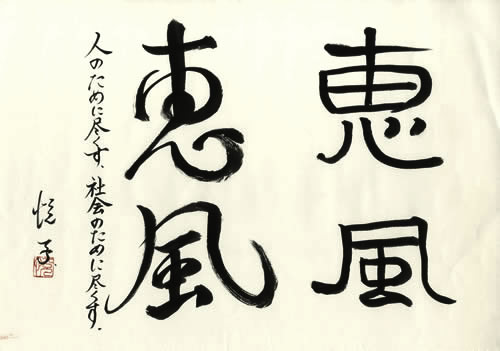 恵風
恵風
人のために尽くす、社会のために尽くす、
悦子